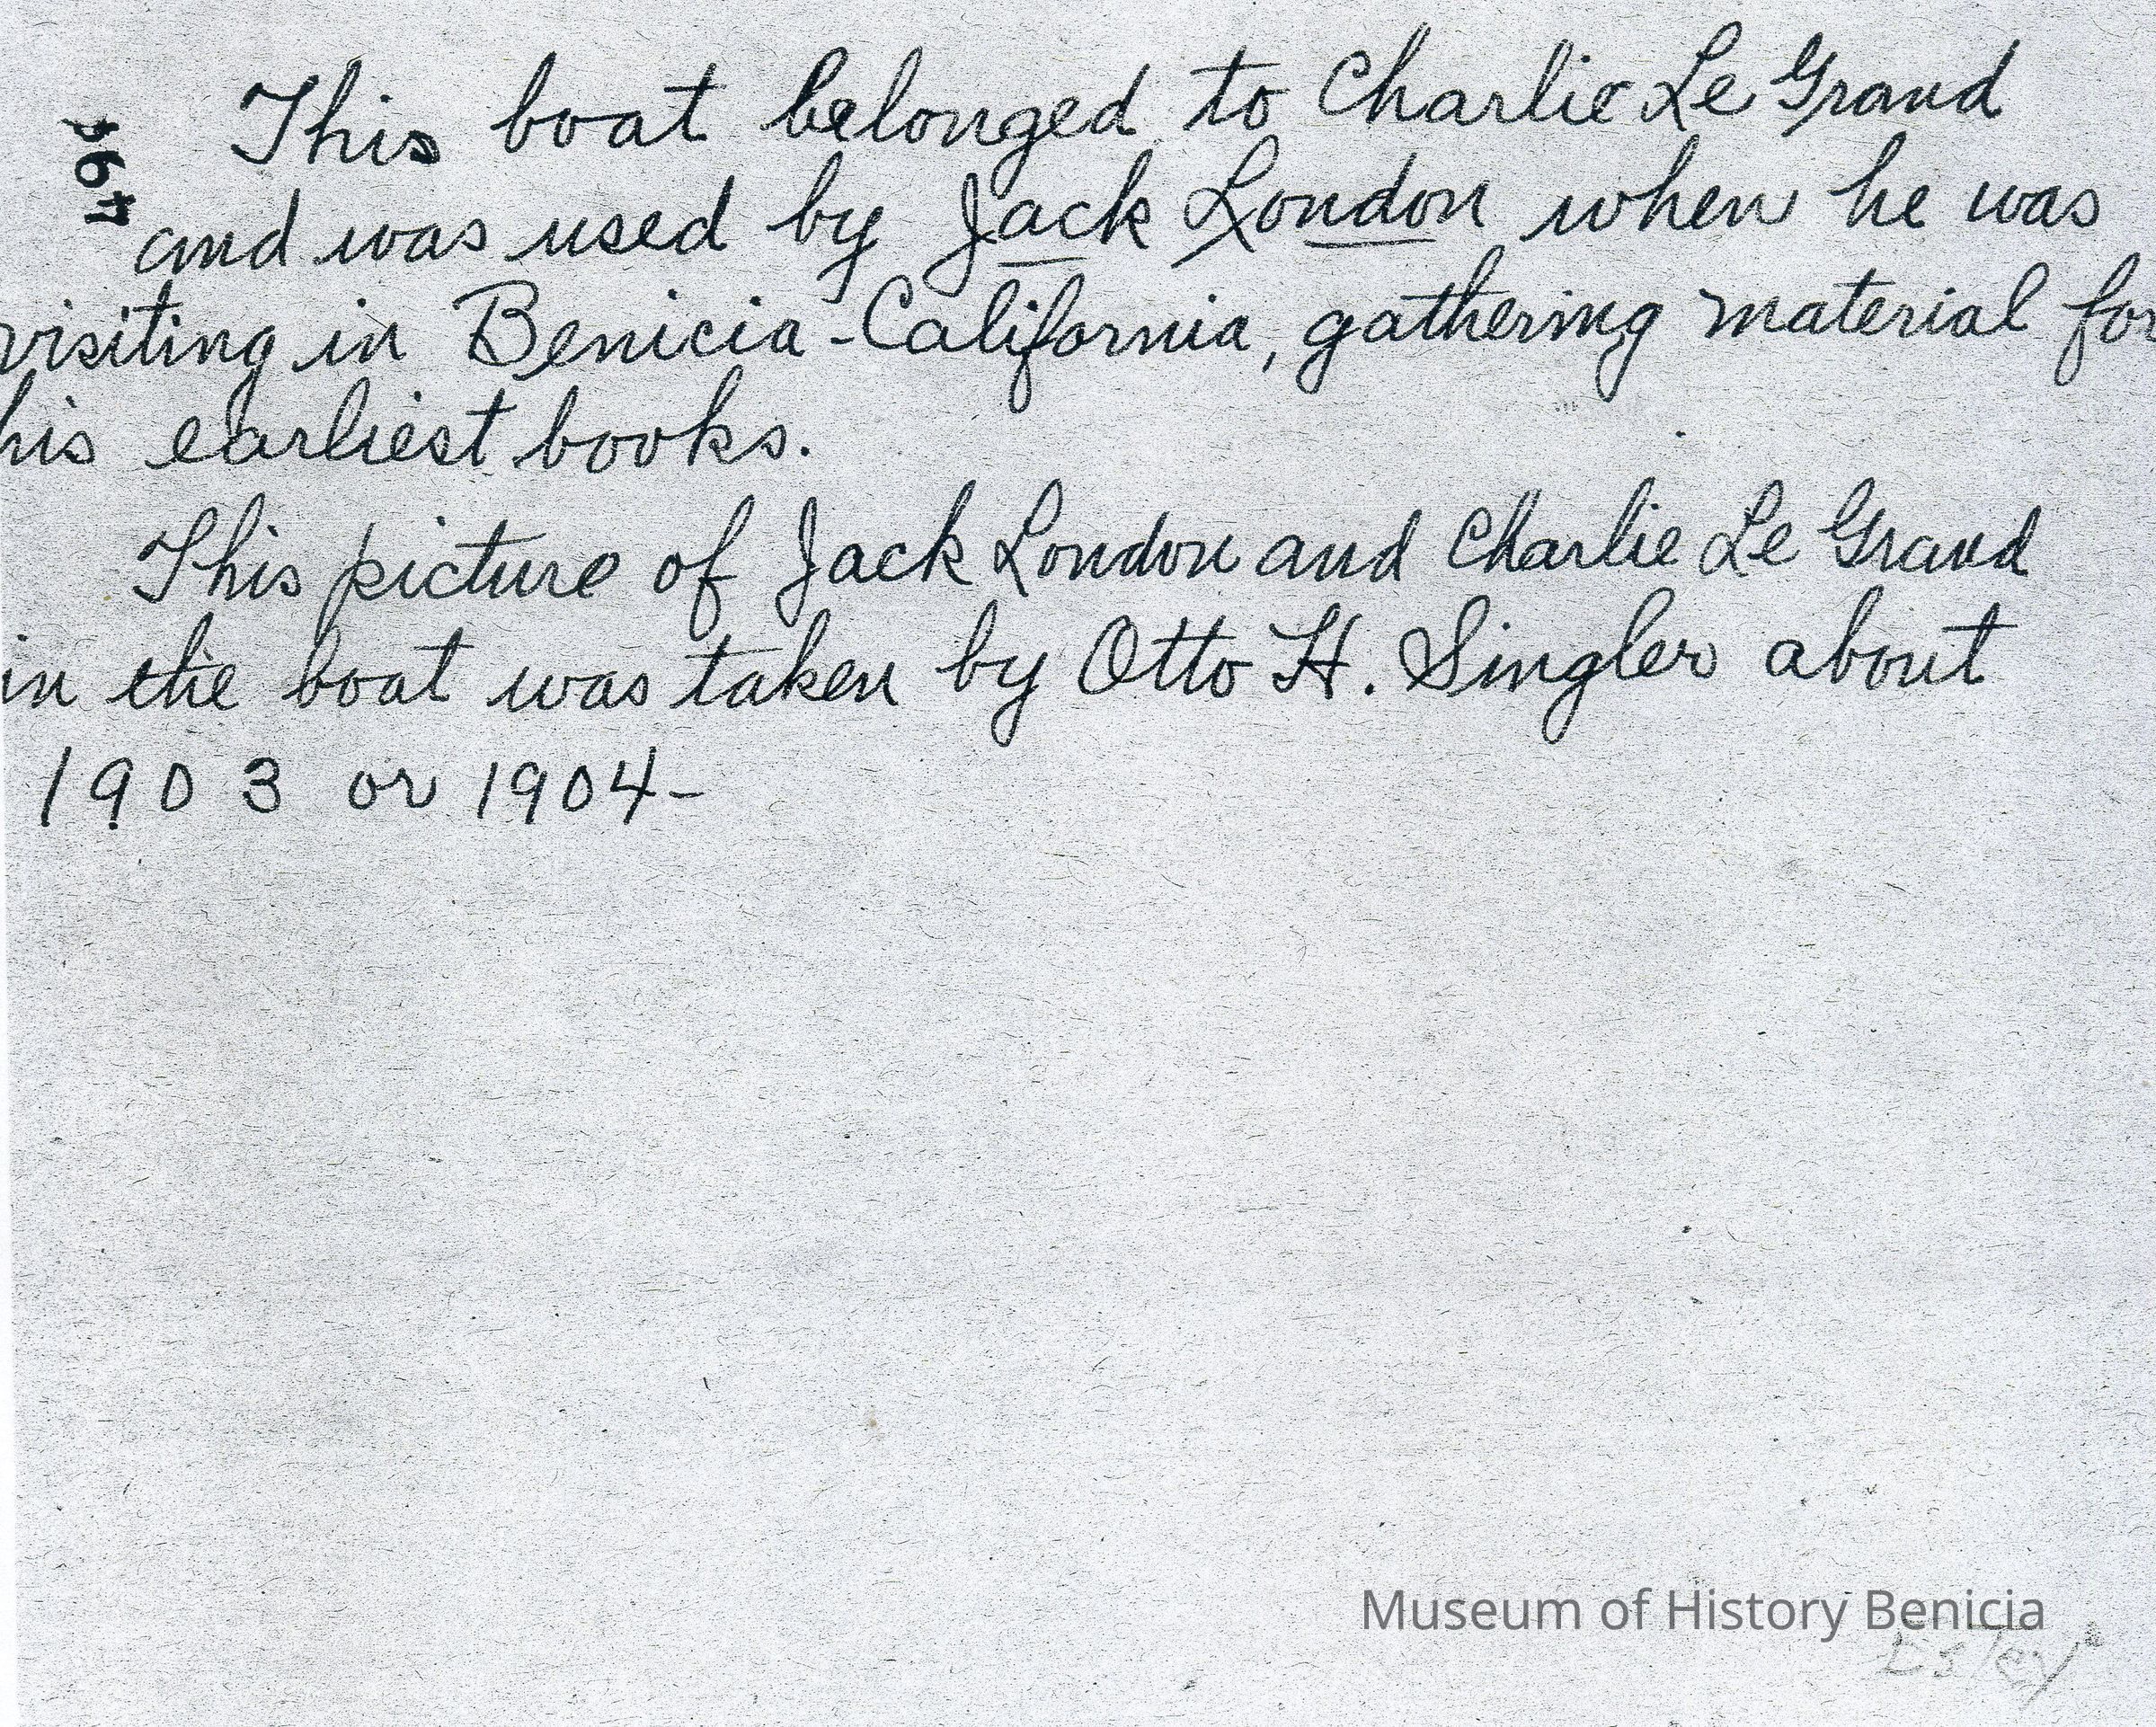 This boat belonged to Charlie Le Grand
and was used by Jack London when he was
visiting in Benicia-California, gathering material for
his earliest books.
This picture of Jack London and Charlie Le Grand
in the boat was taken by Otto H. Singler about
1903 or 1904-
Museum of History Benicia